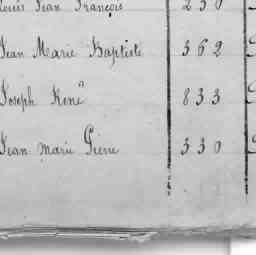 Louis Jean François 230
Jean Marie Baptiste 362
Joseph René 833
Jean Marie Pierre 330